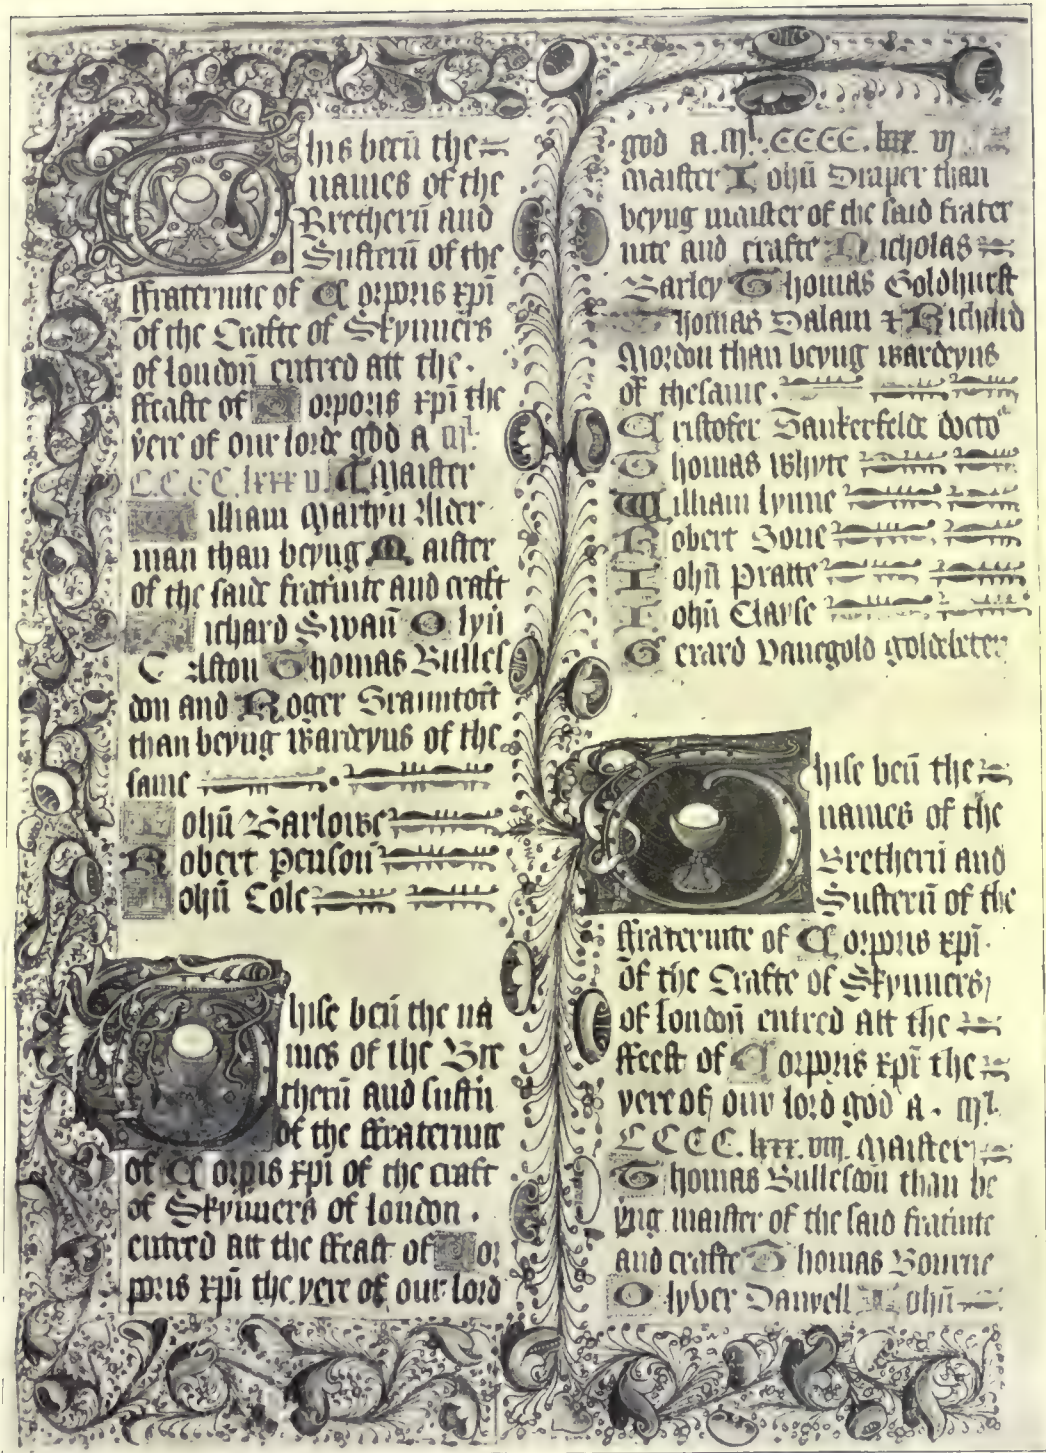 This beeñ the
names of the
Bretherñ and
Susterñ of the
ffraternite of Corporis xpi
of the Crafte of Skynners
of londoñ entred att the
ffeaste of Corporis xpi the
yere of our lorde god a mˡ
CCCC lxxx v Maister
William Martyn Alder
man than beyng Maister
of the saide fratinite and craft
Richard Swañ Olyu
Caston Thomas Bulles
don and Roger Grauntoñ
than beyng wardeyns of the
same
Johñ Barlowe
Robert Pensoñ
Johñ Cole
Thise beñ the na
mes of the Bre
therñ and sustñ
of the ffraternite
of Corpis xpi of the craft
of Skynners of london .
entred att the ffeast of Cor
poris xpi the yere of our lord
god a mˡ . CCCC . lxxx vj
maister Johñ Draper than
beyng maister of the said frater
nite and crafte Nicholas
Barley Thomas Goldhurst
Thomas Dalam & Richard
Mordon than beyng wardeyns
of thesame .
Cristofer Sankerfelde docto
Thomas Whyte
William lynne
Robert Bone
Johñ Pratte
Johñ Clarse
Gerard Vanegold goldebeter
Thise beñ the
names of the
Bretherñ and
Susterñ of the
ffraternite of Corporis xpi .
of the Crafte of Skynners
of londoñ entred att the
ffeest of Corporis xpi the
yere of our lord god a . mˡ
CCCC . lxxx . viii . Maister
Thomas Bullesdoñ than be
yng maister of the said fratinite
and crafte Thomas Bourne
Olyver Danyell Johñ